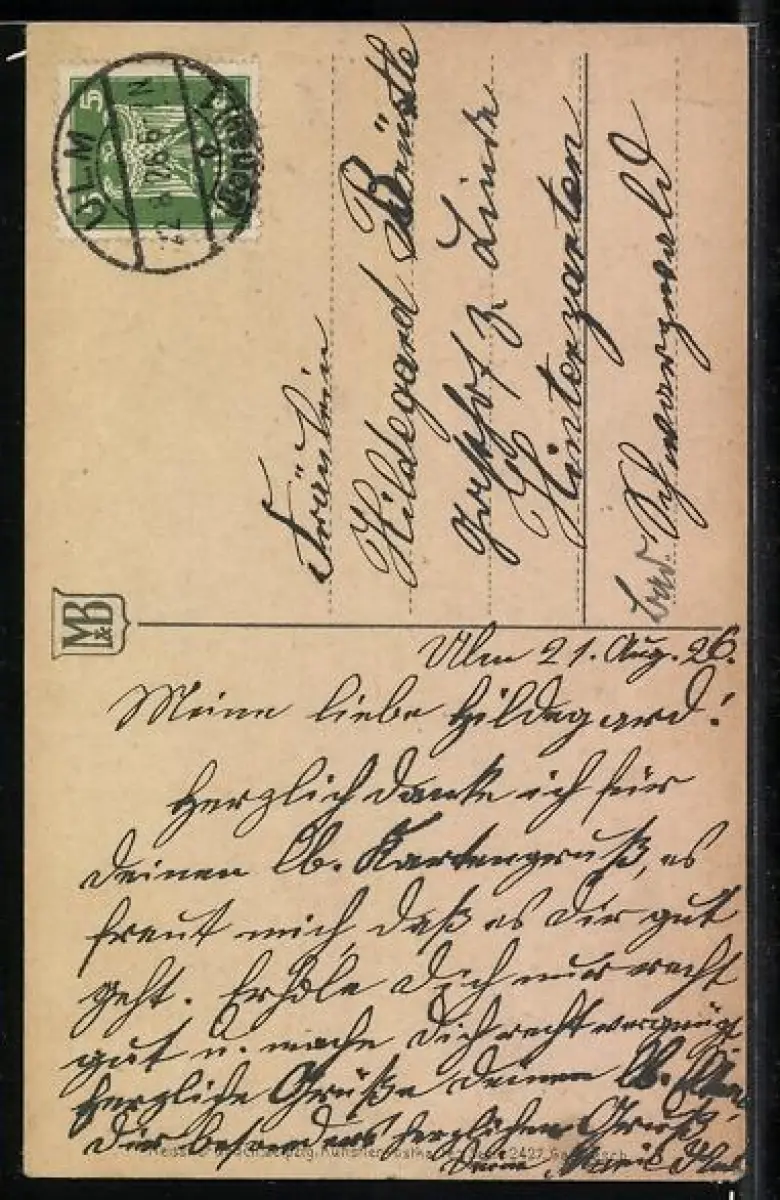 ULM
5
Fräulein
Hildegard Bürkle
Gasthof z. Linde
Hinterzarten
bad. Schwarzwald
M&B
Ulm 21. Aug. 26.
Meine liebe Hildegard!
Herzlich danke ich für
Deinen lb. Kartengruß, es
freut mich, daß es Dir gut
geht. Erhole Dich nur recht
gut u. mache Dich recht vergnügt
Herzliche Grüße Deinen lb.
Dir besonders herzlichen Gruß
Deine